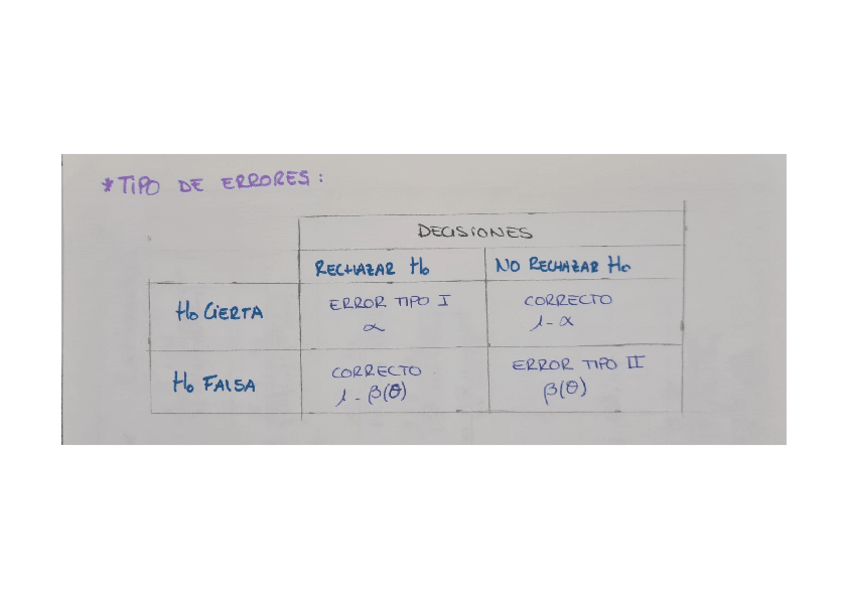 * TIPO DE ERRORES:
DECISIONES
RECHAZAR H₀
NO RECHAZAR H₀
H₀ CIERTA
ERROR TIPO I
α
CORRECTO
1 - α
H₀ FALSA
CORRECTO
1 - β(θ)
ERROR TIPO II
β(θ)